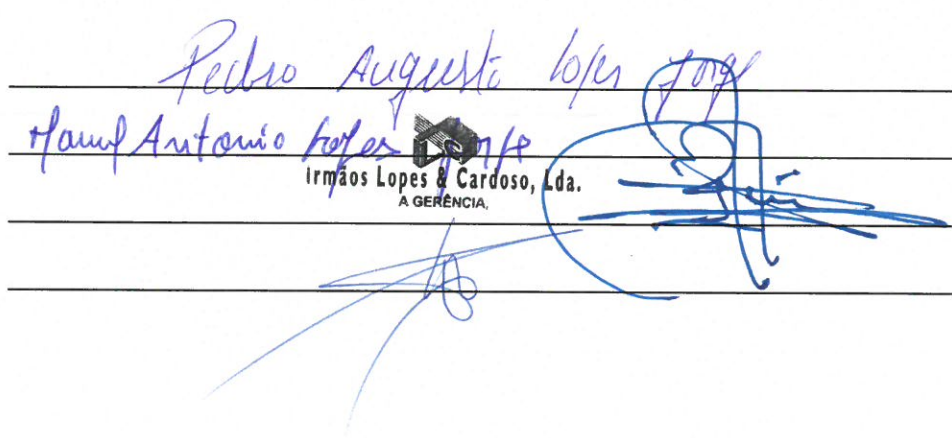 Pedro Augusto Lopes Jorge
Manuel Antonio Lopes Jorge
Irmãos Lopes & Cardoso, Lda.
A GERÊNCIA,